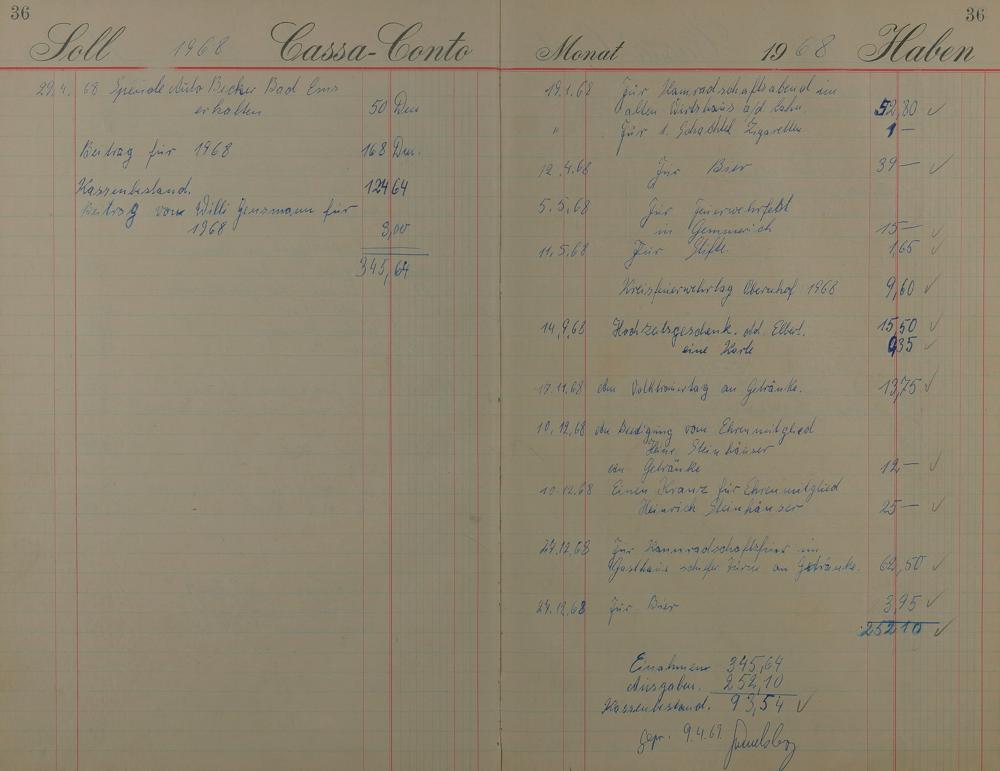 36
Soll 1968 Cassa-Conto
29.4. 68 Spende Auto Becker Bad Ems
erhalten 50 Dm
Beitrag für 1968 168 Dm.
Kassenbestand. 124 64
Beitrag vom Willi Gensmann für
1968 3,00
345,64
36
Monat 1968 Haben
19.1.68 Für Kamradschaftsabend im
alten Wirtshaus a/d. Lahn 52,80 ✓
" Für 1. Schachtel Zigaretten 1 —
12.4.68 Für Bier 39 — ✓
5.5.68 Für Feuerwehrfest
in Gemmerich 15 — ✓
11.5.68 Für Stifte 1,65 ✓
Kreisfeuerwehrtag Obernhof 1968 9,60 ✓
14.9.68 Hochzeitsgeschenk. Elbert. 15,50 ✓
eine Karte 0,35 ✓
17.11.68 Am Volktrauertag an Getränke. 13,75 ✓
10.12.68 An Beedigung vom Ehrenmitglied
Steinhäuser
an Getränke 12 — ✓
10.12.68 Einen Kranz für Ehrenmitglied
Heinrich Steinhäuser 25 — ✓
27.12.68 Für Kamradschaftsfeier im
Gasthaus an Getränke. 62,50 ✓
27.12.68 Für Bier 3,95 ✓
252 10 ✓
Einahmen 345,64
Ausgaben. 252,10
Kassenbestand. 93,54 ✓
gepr. 9.4.69